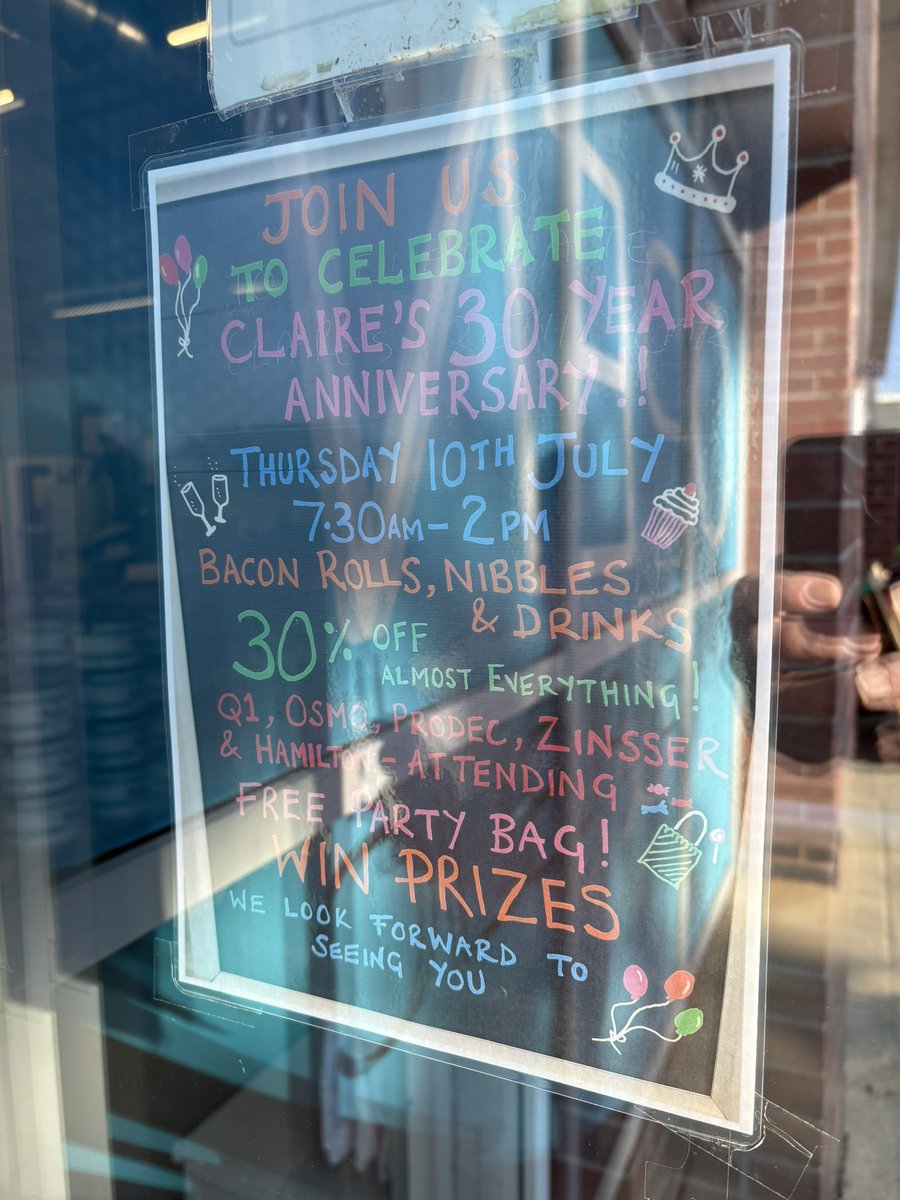 JOIN US
TO CELEBRATE
CLAIRE'S 30 YEAR
ANNIVERSARY!!
THURSDAY 10TH JULY
7·30AM - 2PM
BACON ROLLS, NIBBLES
& DRINKS
30% OFF
ALMOST EVERYTHING!
Q1, OSMO, PRODEC, ZINSSER
& HAMILTON - ATTENDING
FREE PARTY BAG!
WIN PRIZES
WE LOOK FORWARD TO
SEEING YOU